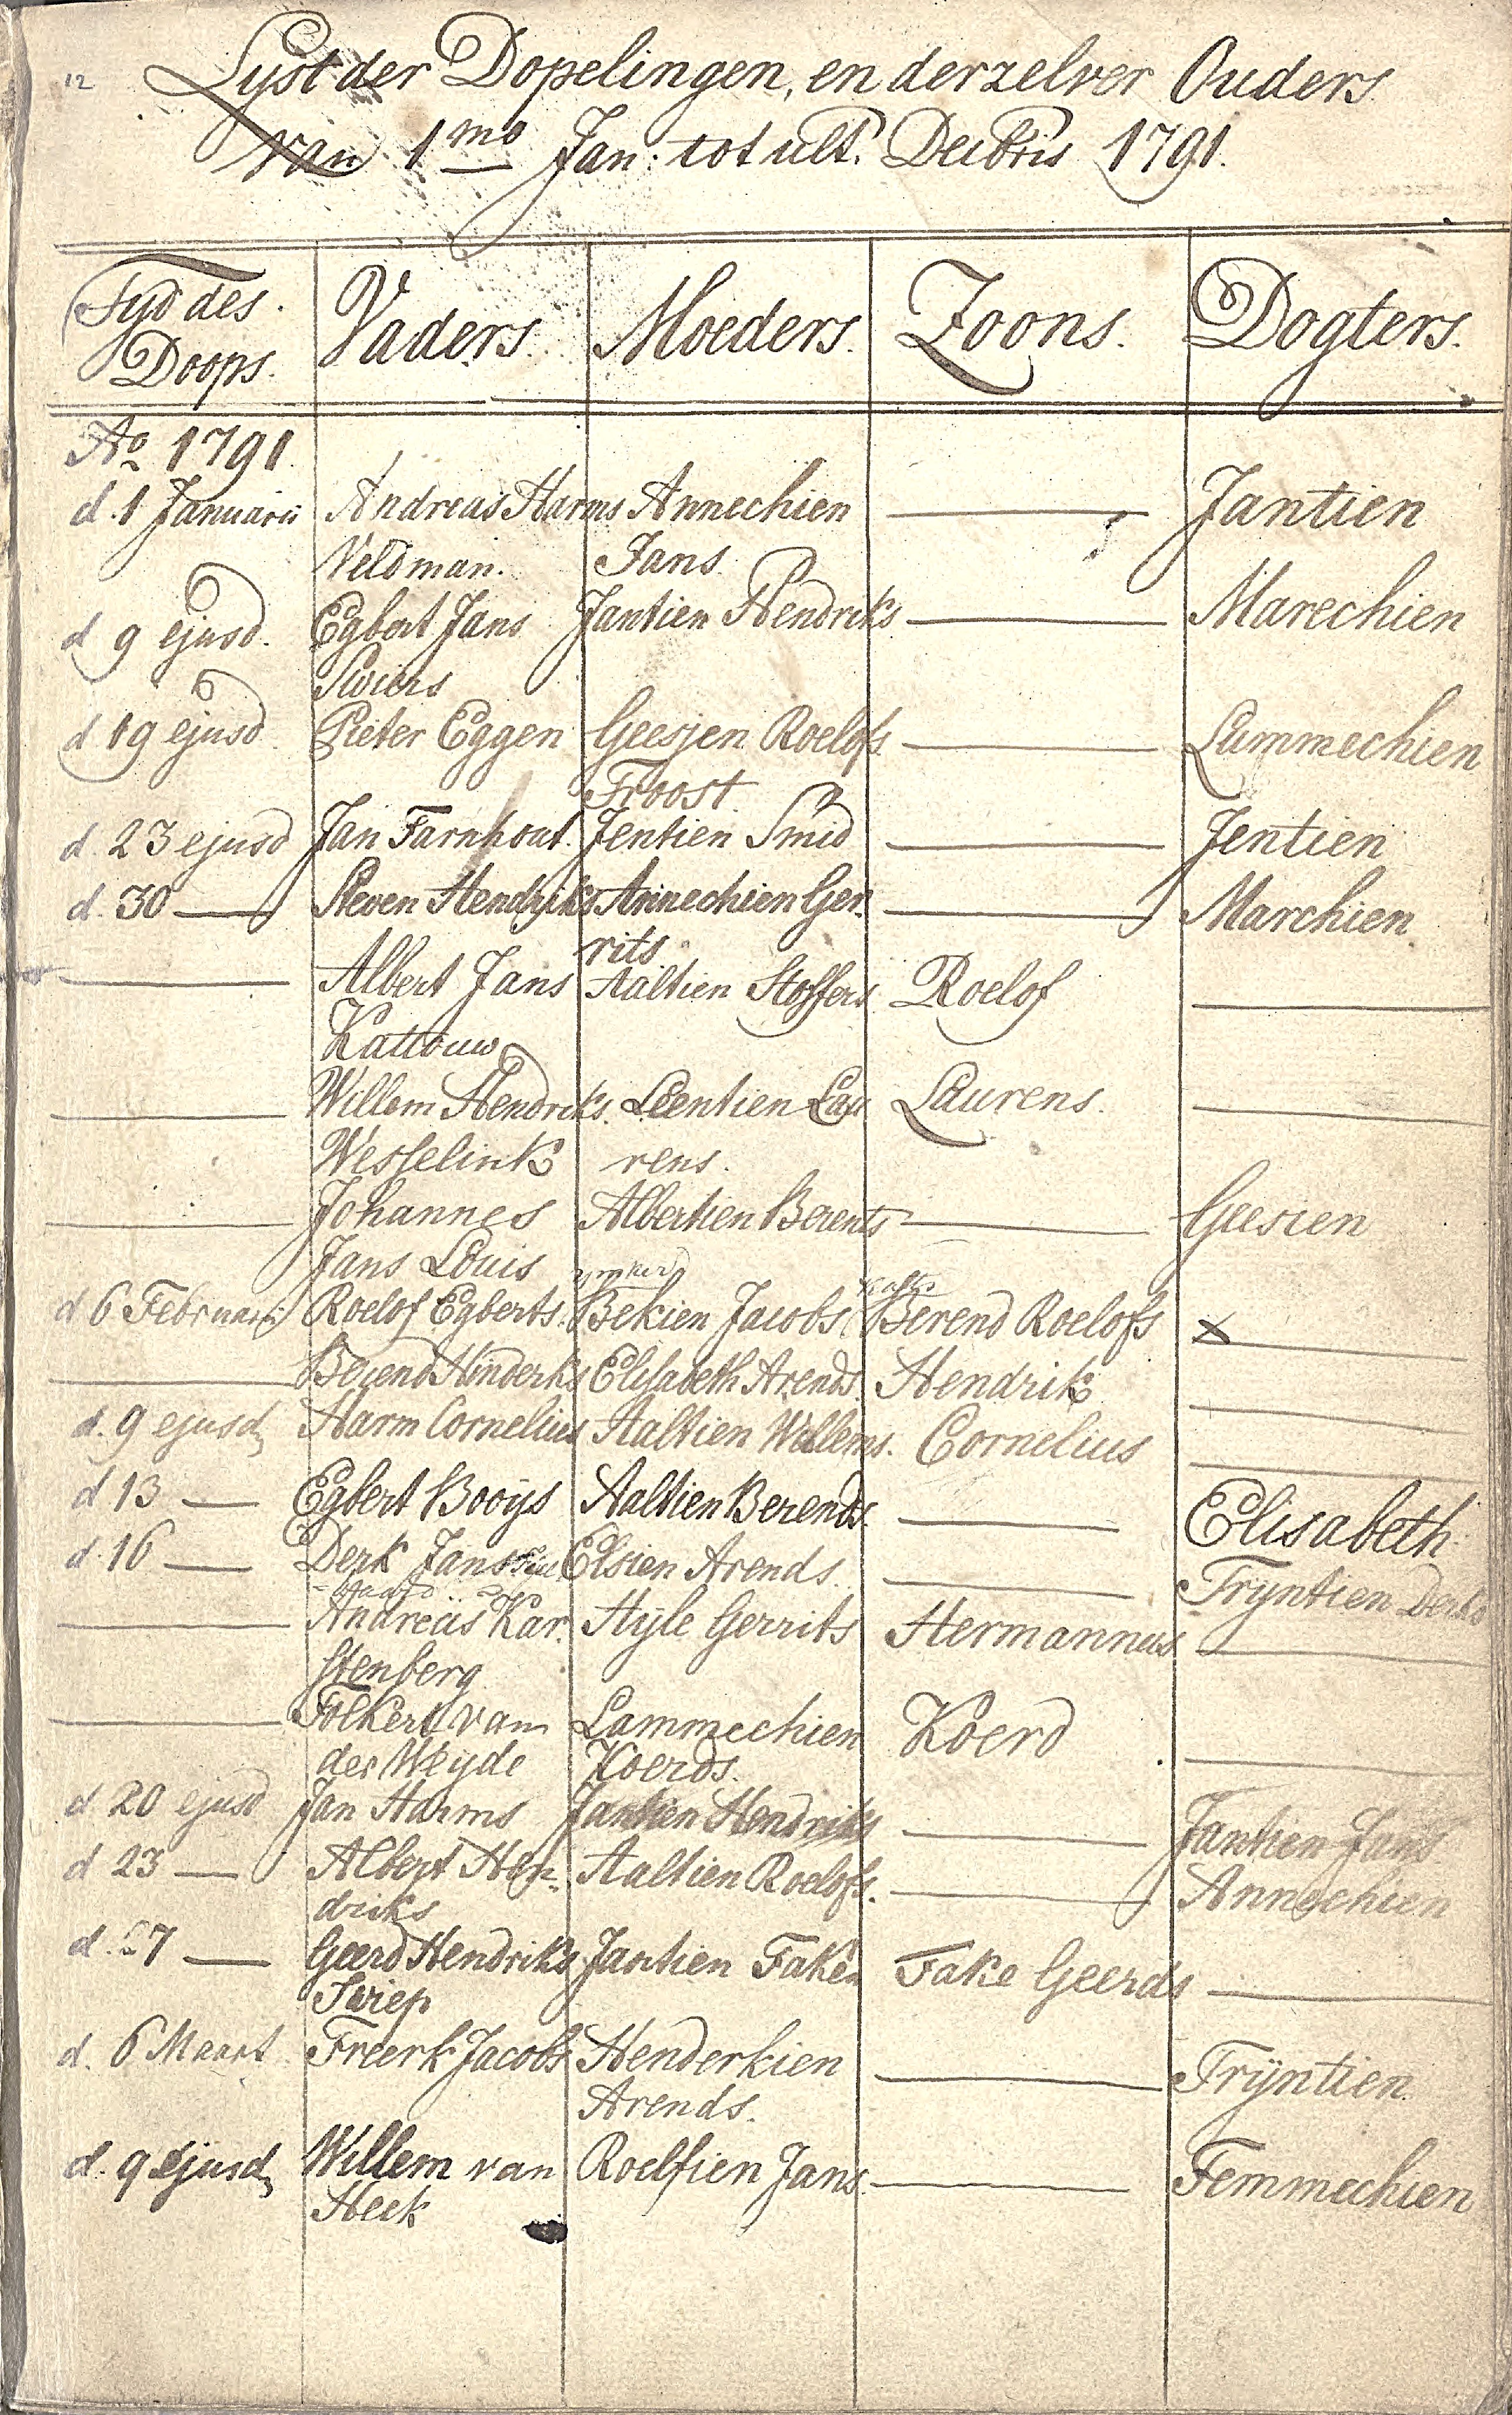 12
Lyst der Dopelingen, en derzelver Ouders
van 1mo Jan: tot ult. Decbris 1791.
Tyd des Doops. Vaders. Moeders. Zoons. Dogters.
Ao 1791
d. 1 Januarii Andreas Harms Annechien — Jantien
Veldman. Jans
d 9 ejusd. Egbert Jans Jantien Hendriks — Marechien
Swiers
d 19 ejusd. Pieter Eggen Geesjen Roelofs — Lammechien
Troost.
d. 23 ejusd Jan Farnhout. Jentien Smid — Jentien
d. 30 — Steven Hendriks Annechien Ger — Marchien
rits
— Albert Jans Aaltien Stoffers Roelof —
Kattouw
— Willem Hendriks. Leentien Lau Laurens. —
Wesselink rens.
— Johannes Albertien Berents — Geesien
Jans Louis
d 6 Februarii Roelof Egberts. Bekien Jacobs Berend Roelofs x —
— Berend Hinderks Elisabeth Arends. Hendrik —
d. 9 ejusd, Harm Cornelius Aaltien Willems. Cornelius —
d 13 — Egbert Booijs Aaltien Berends. — Elisabeth
d. 16 — Derk Jans Elsien Arends. — Tryntien Derks
— Andreäs Kar. Hyle Gerrits Hermannus —
stenberg
— Folkert van Lammechien Koerd —
der Weyde Koerds.
d 20 ejusd Jan Harms Jantien Hendriks — Jantien Jans
d 23 — Albert Hen- Aaltien Roelofs. — Annechien
driks
d. 27 — Geerd Hendriks Jantien Faken Fake Geerds —
Swiep
d. 6 Maart Freerk Jacobs Henderkien — Trÿntien.
Arends.
d. 9 ejusd, Willem van Roelfien Jans. — Femmechien
Heek